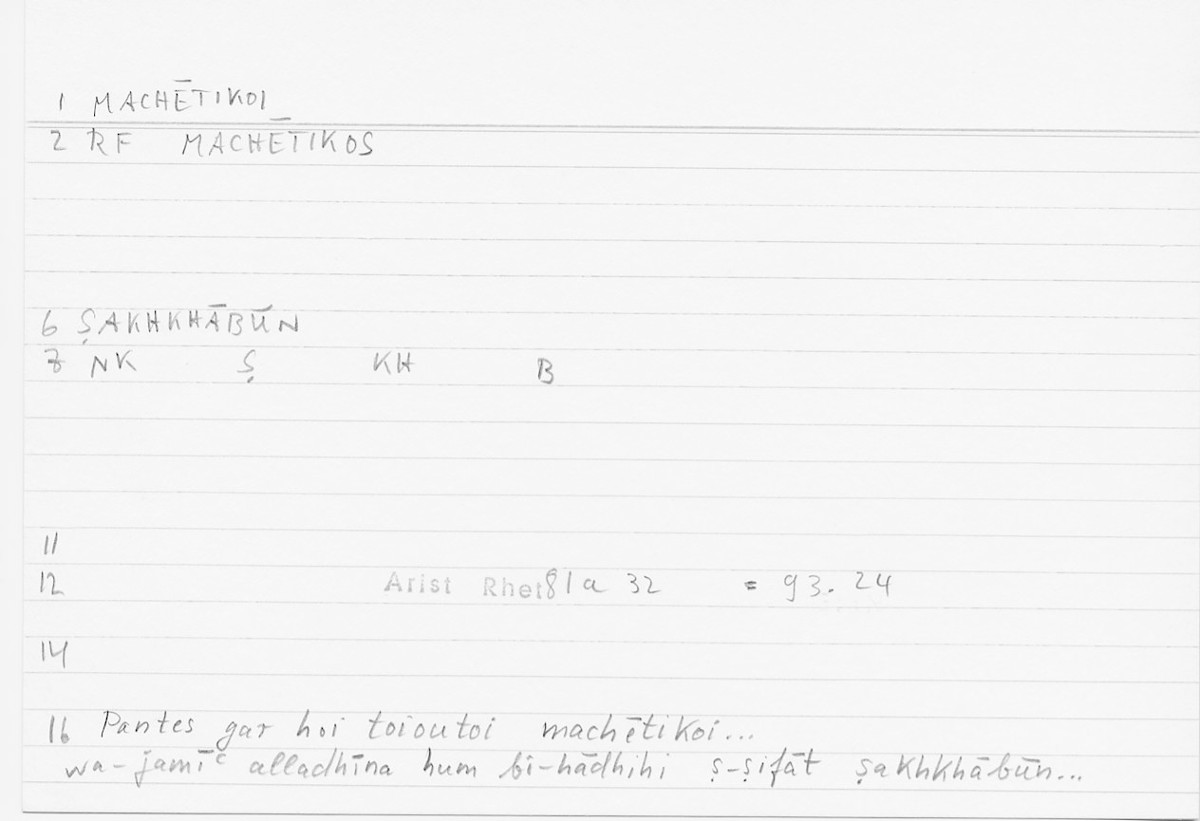 1 MACHĒTIKOI
2 RF MACHĒTIKOS
6 ṢAKHKHĀBŪN
7 NK Ṣ KH B
11
12 Arist Rhet 81a 32 = 93.24
14
16 Pantes gar hoi toioutoi machētikoi...
wa-jamīʿ alladhīna hum bi-hādhihi ṣ-ṣifāt ṣakhkhābūn...